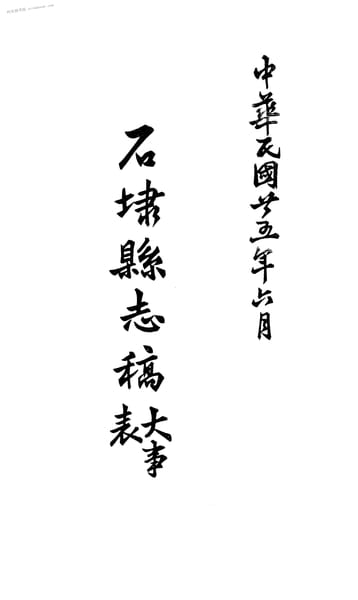 中華民國廿五年六月
石埭縣志稿大事表